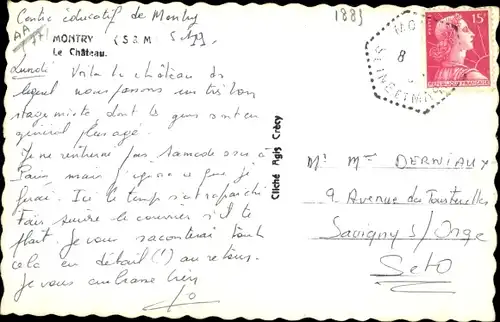 Centre éducatif de Montry
S et M
1883
MONTRY (S & M)
Le Château.
Lundi Voilà le château dans
lequel nous passons un très bon
stage mixte dont les gens sont en
général plus âgés.
Je ne rentrerai pas samedi soir à
Paris mais j'ignore ce que je
ferai. Ici le temps s'est rafraîchi
Faire suivre le courrier s'il te
plaît. Je vous raconterai tout
cela en détail (!) au retour.
Je vous embrasse bien
Jo
Cliché Agis Crécy
8
SEINE ET MARNE
15F
REPUBLIQUE FRANÇAISE
Mr Mme DERNIAUX
9 Avenue des Tourterelles
Savigny S/ Orge
S et O